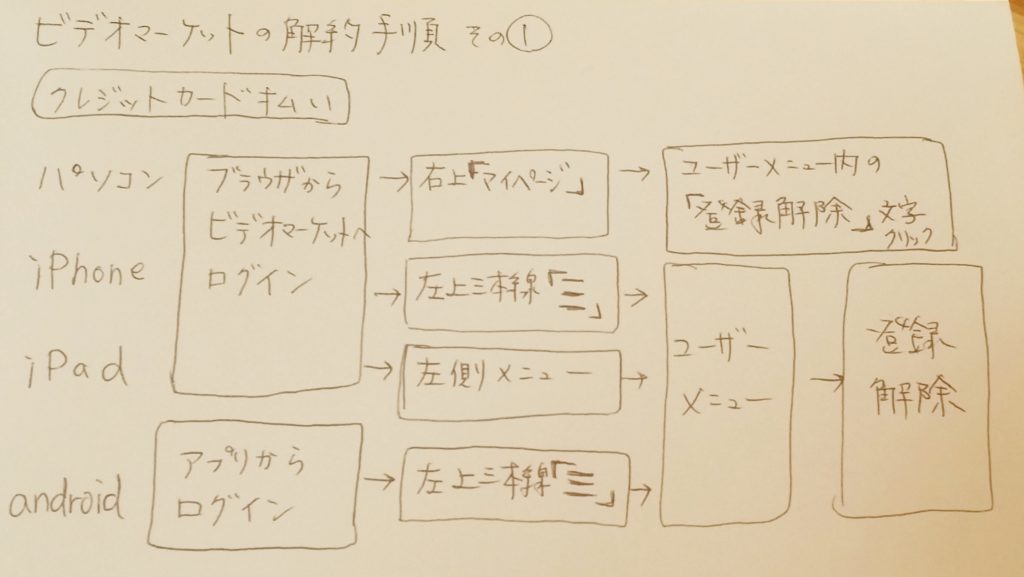 ビデオマーケットの解約手順 その①
クレジットカード払い
パソコン
ブラウザから
ビデオマーケットへ
ログイン
→
右上「マイページ」
→
ユーザーメニュー内の
「登録解除」文字
クリック
iPhone
→
左上三本線「三」
→
iPad
→
左側メニュー
→
ユーザー
メニュー
→
登録
解除
android
アプリから
ログイン
→
左上三本線「三」
→